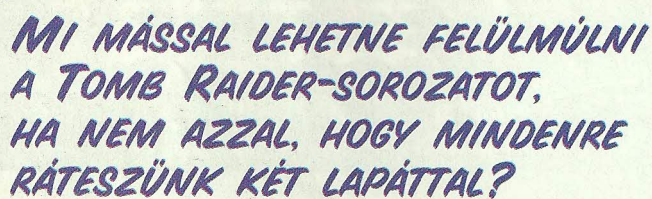 Mi mással lehetne felülmúlni
a Tomb Raider-sorozatot,
ha nem azzal, hogy mindenre
ráteszünk két lapáttal?